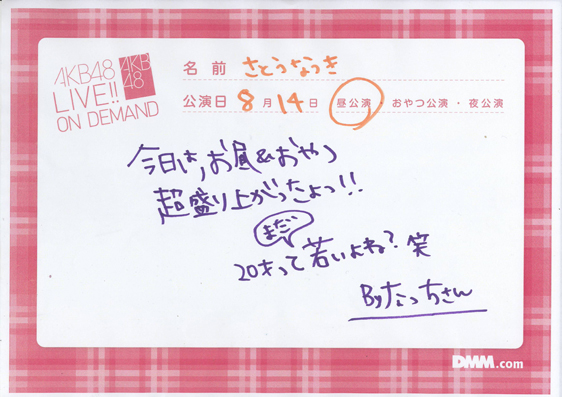 AKB48
LIVE!!
ON DEMAND
AKB
48
名前 さとうなつき
公演日 8月14日 昼公演・おやつ公演・夜公演
今日は、お昼&おやつ
超盛り上がったよっ!!
まだ
20才って若いよね?笑
Byなっちさん
DMM.com